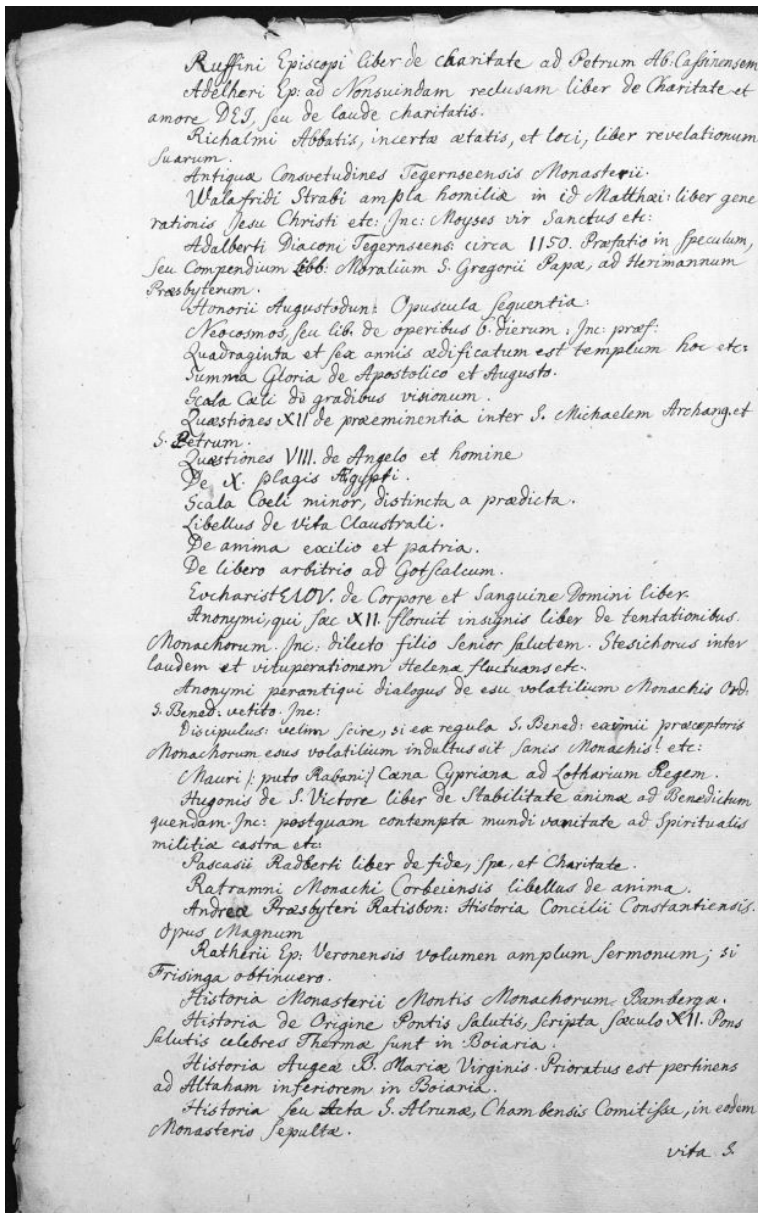 Ruffini Episcopi liber de charitate ad Petrum Ab: Cassinensem
Adelheri Ep: ad Nonsuindam reclusam liber de Charitate et
amore DEI, seu de laude charitatis.
Richalmi Abbatis, incertæ ætatis, et loci, liber revelationum
suarum.
Antiquæ Consvetudines Tegernseensis Monasterii.
Walafridi Strabi ampla homiliæ in id Matthæi: liber gene
rationis Jesu Christi etc: Jnc: Moyses vir Sanctus etc:
Adalberti Diaconi Tegernseens: circa 1150. Præfatio in speculum,
seu Compendium libb: Moralium S. Gregorii Papæ, ad Herimannum
Præsbyterum.
Honorii Augustodun: Opuscula sequentia:
Neocosmos, seu lib. de operibus 6. dierum: Jnc: præf:
Quadraginta et sex annis ædificatum est templum hoc etc:
Summa Gloria de Apostolico et Augusto.
Scala Cæli de gradibus visionum.
Quæstiones XII de præeminentia inter S. Michaelem Archang. et
S. Petrum.
Quæstiones VIII. de Angelo et homine
De X. plagis Ægypti.
Scala Coeli minor, distincta a prædicta.
Libellus de vita Claustrali.
De anima exilio et patria.
De libero arbitrio ad Gotscalcum.
Evcharist de Corpore et Sanguine Domini liber.
Anonymi, qui sæc XII. floruit insignis liber de tentationibus
Monachorum. Jnc: dilecto filio Senior salutem. Stesichorus inter
laudem et vituperationem Helenæ fluctuans etc:
Anonymi perantiqui dialogus de esu volatilium Monachis Ord:
S. Bened: vetito. Jnc:
Discipulus: velim scire, si ex regula S. Bened: eximii præceptoris
Monachorum esus volatilium indultus sit sanis Monachis? etc:
Mauri /: puto Rabani :/ Cæna Cypriana ad Lotharium Regem.
Hugonis de S. Victore liber de Stabilitate animæ ad Benedictum
quendam. Jnc: postquam contempta mundi vanitate ad Spiritualis
militiæ castra etc:
Pascasii Radberti liber de fide, spe, et Charitate.
Ratramni Monachi Corbeiensis libellus de anima.
Andreæ Præsbyteri Ratisbon: Historia Concilii Constantiensis.
Opus Magnum
Ratherii Ep: Veronensis volumen amplum sermonum; si
Frisinga obtinuero.
Historia Monasterii Montis Monachorum Bambergæ.
Historia de Origine Pontis Salutis, scripta sæculo XII. Pons
Salutis celebres Thermæ sunt in Boiaria.
Historia Augeæ B. Mariæ Virginis. Prioratus est pertinens
ad Altaham inferiorem in Boiaria.
Historia seu Acta S. Alrunæ, Chambensis Comitissæ, in eodem
Monasterio sepultæ.
vita S.